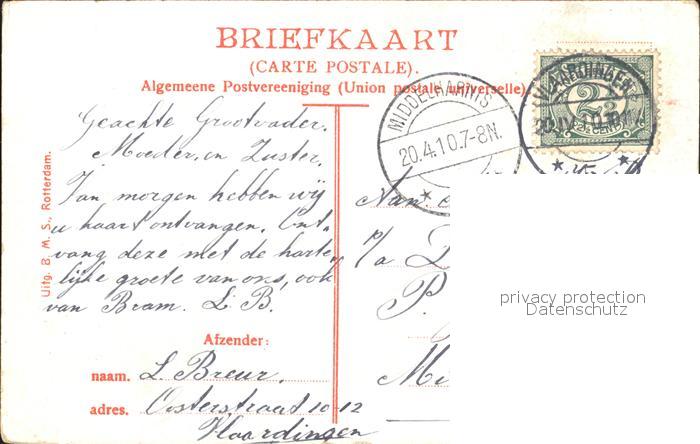 BRIEFKAART
(CARTE POSTALE).
Algemeene Postvereeniging (Union postale universelle).
MIDDELHARNIS
20.4.10.7-8N.
VLAARDINGEN
2½
CENT
Geachte Grootvader.
Moeder en Zuster.
Van morgen hebben wij
u kaart ontvangen. Ont-
vang deze met de harte-
lijke groete van ons, ook
van Bram. L. B.
Uitg. B. M. S., Rotterdam.
Aan
P/a
P.
privacy protection
Datenschutz
Afzender:
naam. L. Breur.
adres. Oosterstraat 10-12
Vlaardingen